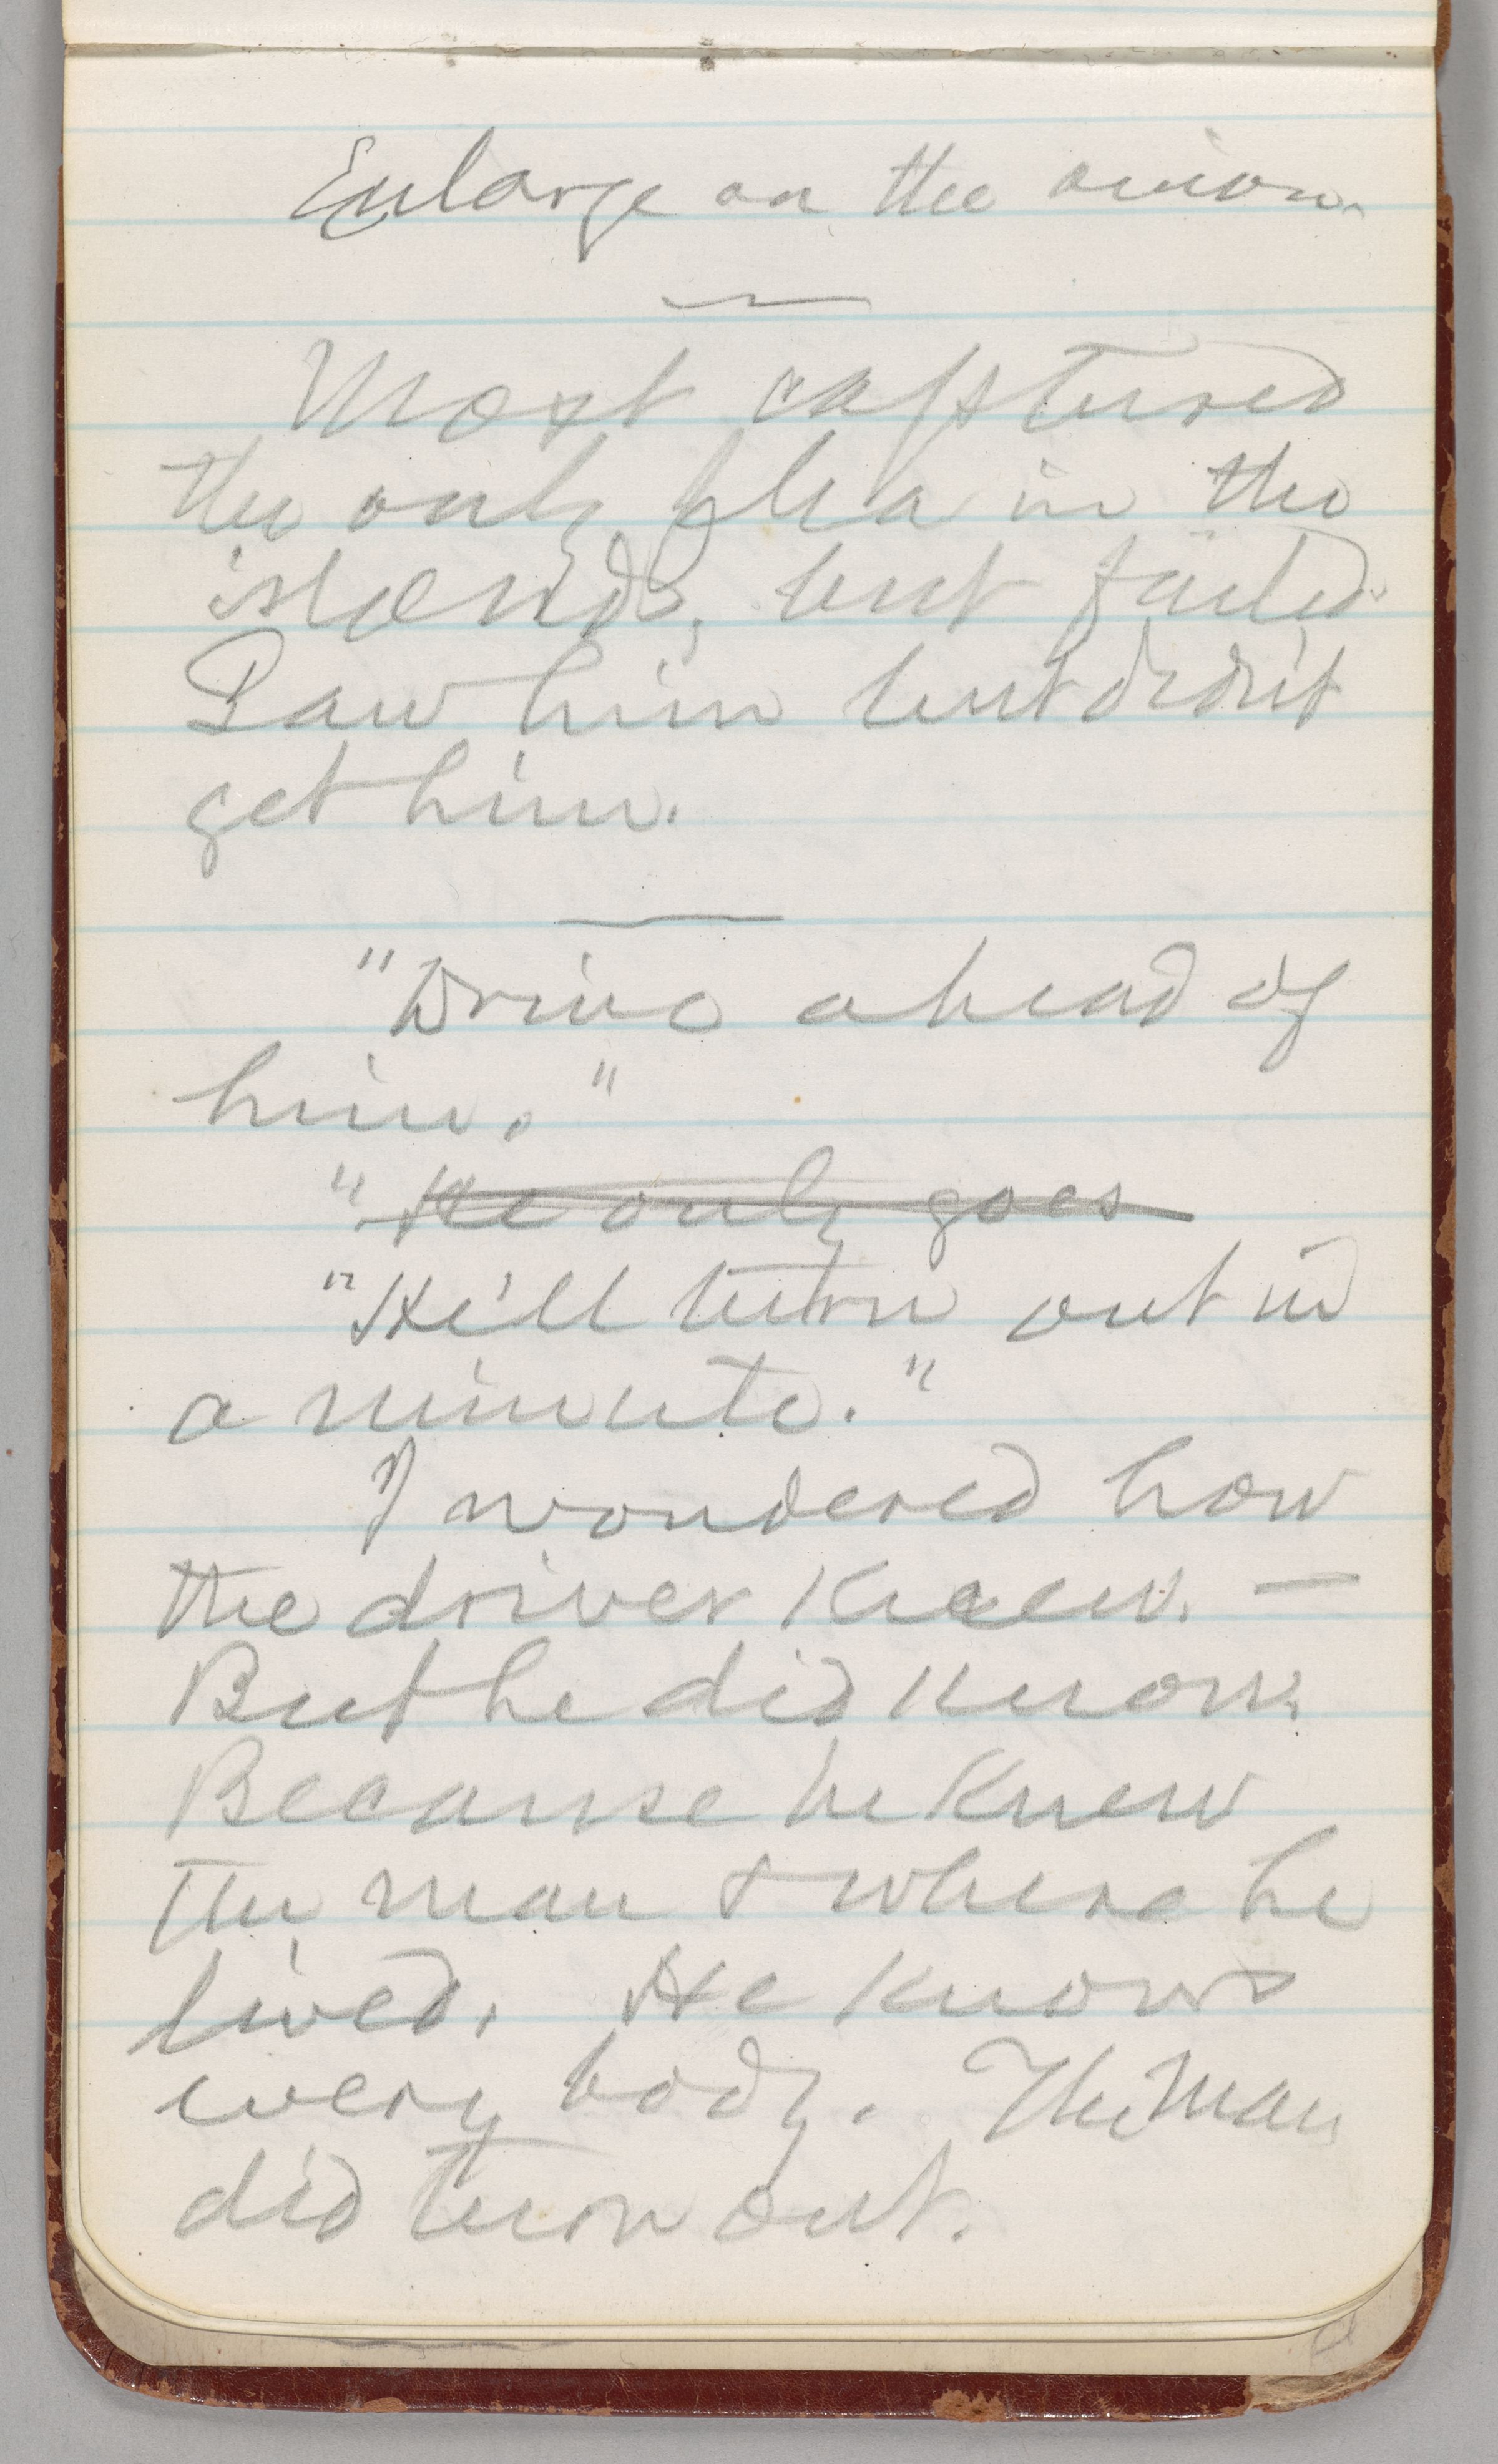 Enlarge on the onion.
Most captured
the only flea in the
islands, but failed.
Saw him but didn't
get him.
"Drive ahead of
him."
"He only goes
"He'll turn out in
a minute."
I wondered how
the driver knew. —
But he did know.
Because he knew
the man & where he
lived. He knows
every body. The man
did turn out.